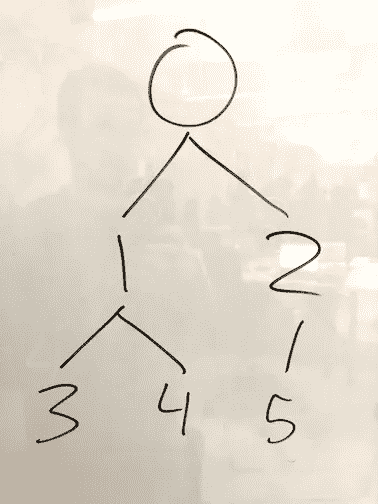 0
1 2
3 4 5